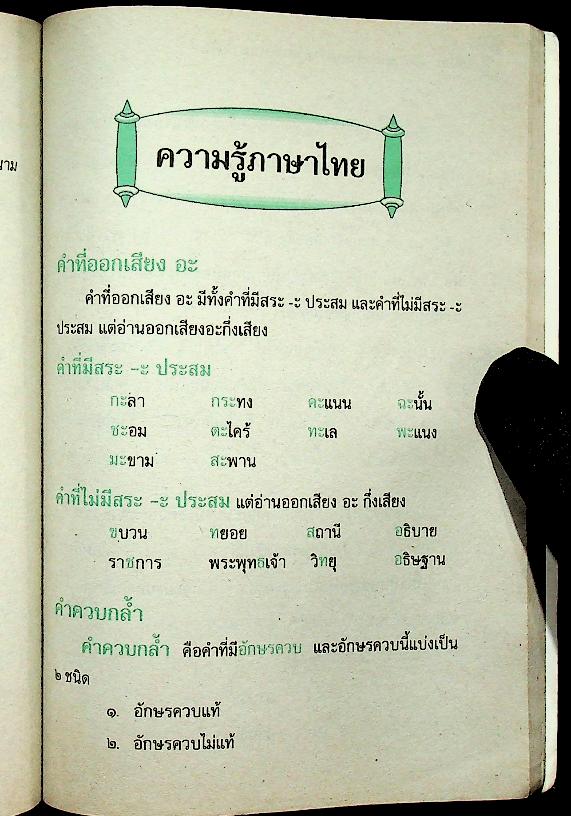 ความรู้ภาษาไทย
คำที่ออกเสียง อะ
คำที่ออกเสียง อะ มีทั้งคำที่มีสระ -ะ ประสม และคำที่ไม่มีสระ -ะ
ประสม แต่อ่านออกเสียงอะกึ่งเสียง
คำที่มีสระ -ะ ประสม
กะลา กระทง คะแนน ฉะนั้น
ชะอม ตะไคร้ ทะเล พะแนง
มะขาม สะพาน
คำที่ไม่มีสระ -ะ ประสม แต่อ่านออกเสียง อะ กึ่งเสียง
ขบวน ทยอย สถานี อธิบาย
ราชการ พระพุทธเจ้า วิทยุ อธิษฐาน
คำควบกล้ำ
คำควบกล้ำ คือคำที่มีอักษรควบ และอักษรควบนี้แบ่งเป็น
๒ ชนิด
๑. อักษรควบแท้
๒. อักษรควบไม่แท้